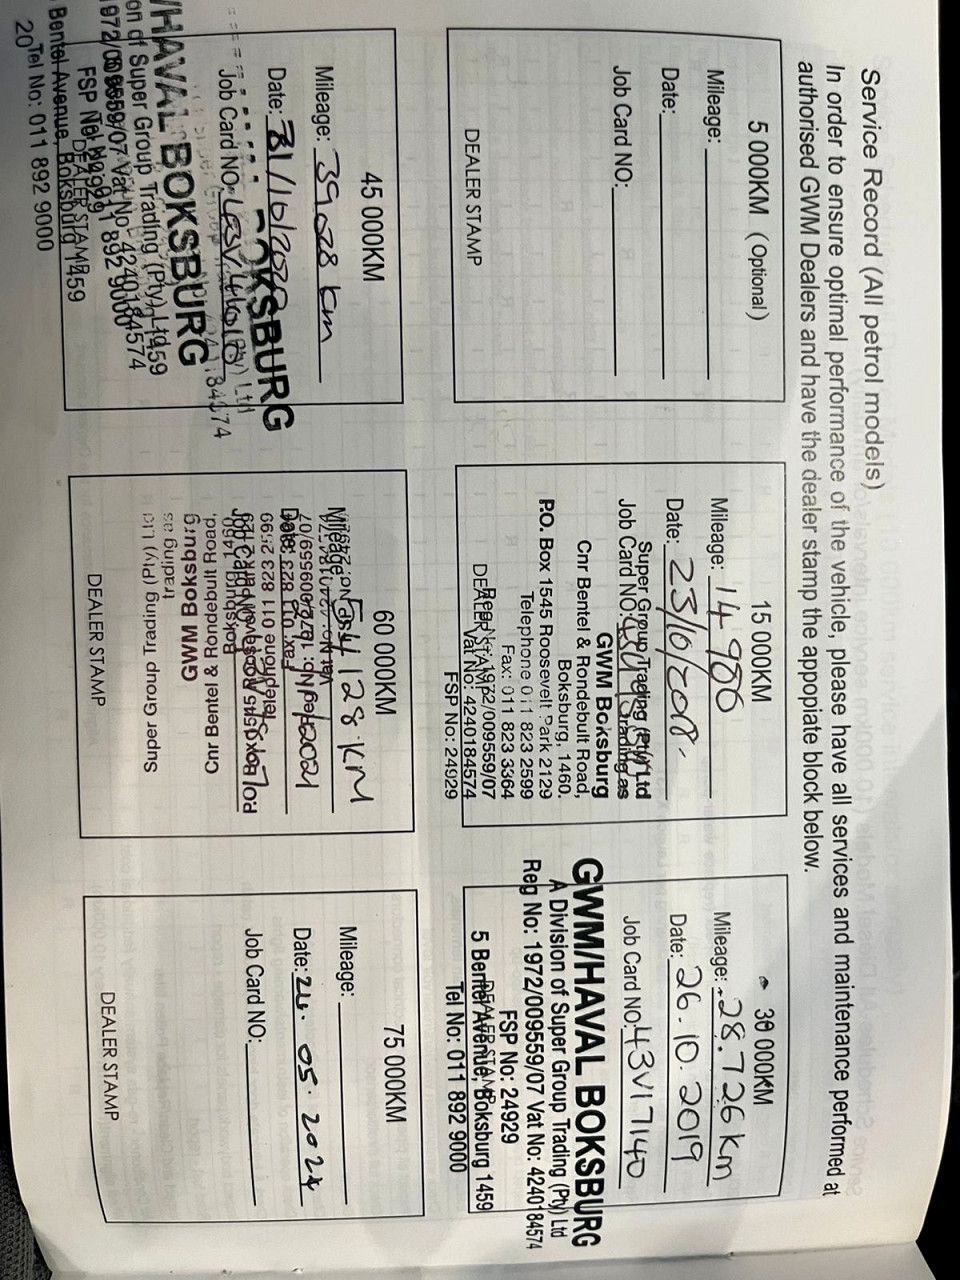 Service Record (All petrol models)
In order to ensure optimal performance of the vehicle, please have all services and maintenance performed at
authorised GWM Dealers and have the dealer stamp the appopiate block below.
5 000KM (Optional)
Mileage:
Date:
Job Card NO:
DEALER STAMP
15 000KM
Mileage: 14 986
Date: 23/10/2018
Job Card NO:
Super Group Trading (Pty) Ltd
Trading as
GWM Boksburg
Cnr Bentel & Rondebult Road,
Boksburg, 1460.
P.O. Box 1545 Roosevelt Park 2129
Telephone 011 823 2599
Fax: 011 823 3364
Reg No: 1972/009559/07
DEALER STAMP
Vat No: 4240184574
FSP No: 24929
30 000KM
Mileage: 28.726km
Date: 26.10.2019
Job Card NO: 43V17140
GWM/HAVAL BOKSBURG
A Division of Super Group Trading (Pty) Ltd
Reg No: 1972/009559/07 Vat No: 4240184574
FSP No: 24929
DEALER STAMP
5 Bentel Avenue, Boksburg 1459
Tel No: 011 892 9000
45 000KM
Mileage: 39028 km
Date: 31/10/
BOKSBURG
Job Card NO:
(Pty) Ltd
/HAVAL BOKSBURG
on of Super Group Trading (Pty) Ltd
1972/009559/07 Vat No: 4240184574
FSP No: 24929
DEALER STAMP
Bentel Avenue, Boksburg 1459
Tel No: 011 892 9000
60 000KM
Mileage: 54128 KM
Date: 2021
Job Card NO:
Super Group Trading (Pty) Ltd
trading as
GWM Boksburg
Cnr Bentel & Rondebult Road,
Boksburg, 1460
Telephone 011 823 2599
DEALER STAMP
75 000KM
Mileage:
Date: 24.05.2024
Job Card NO:
DEALER STAMP